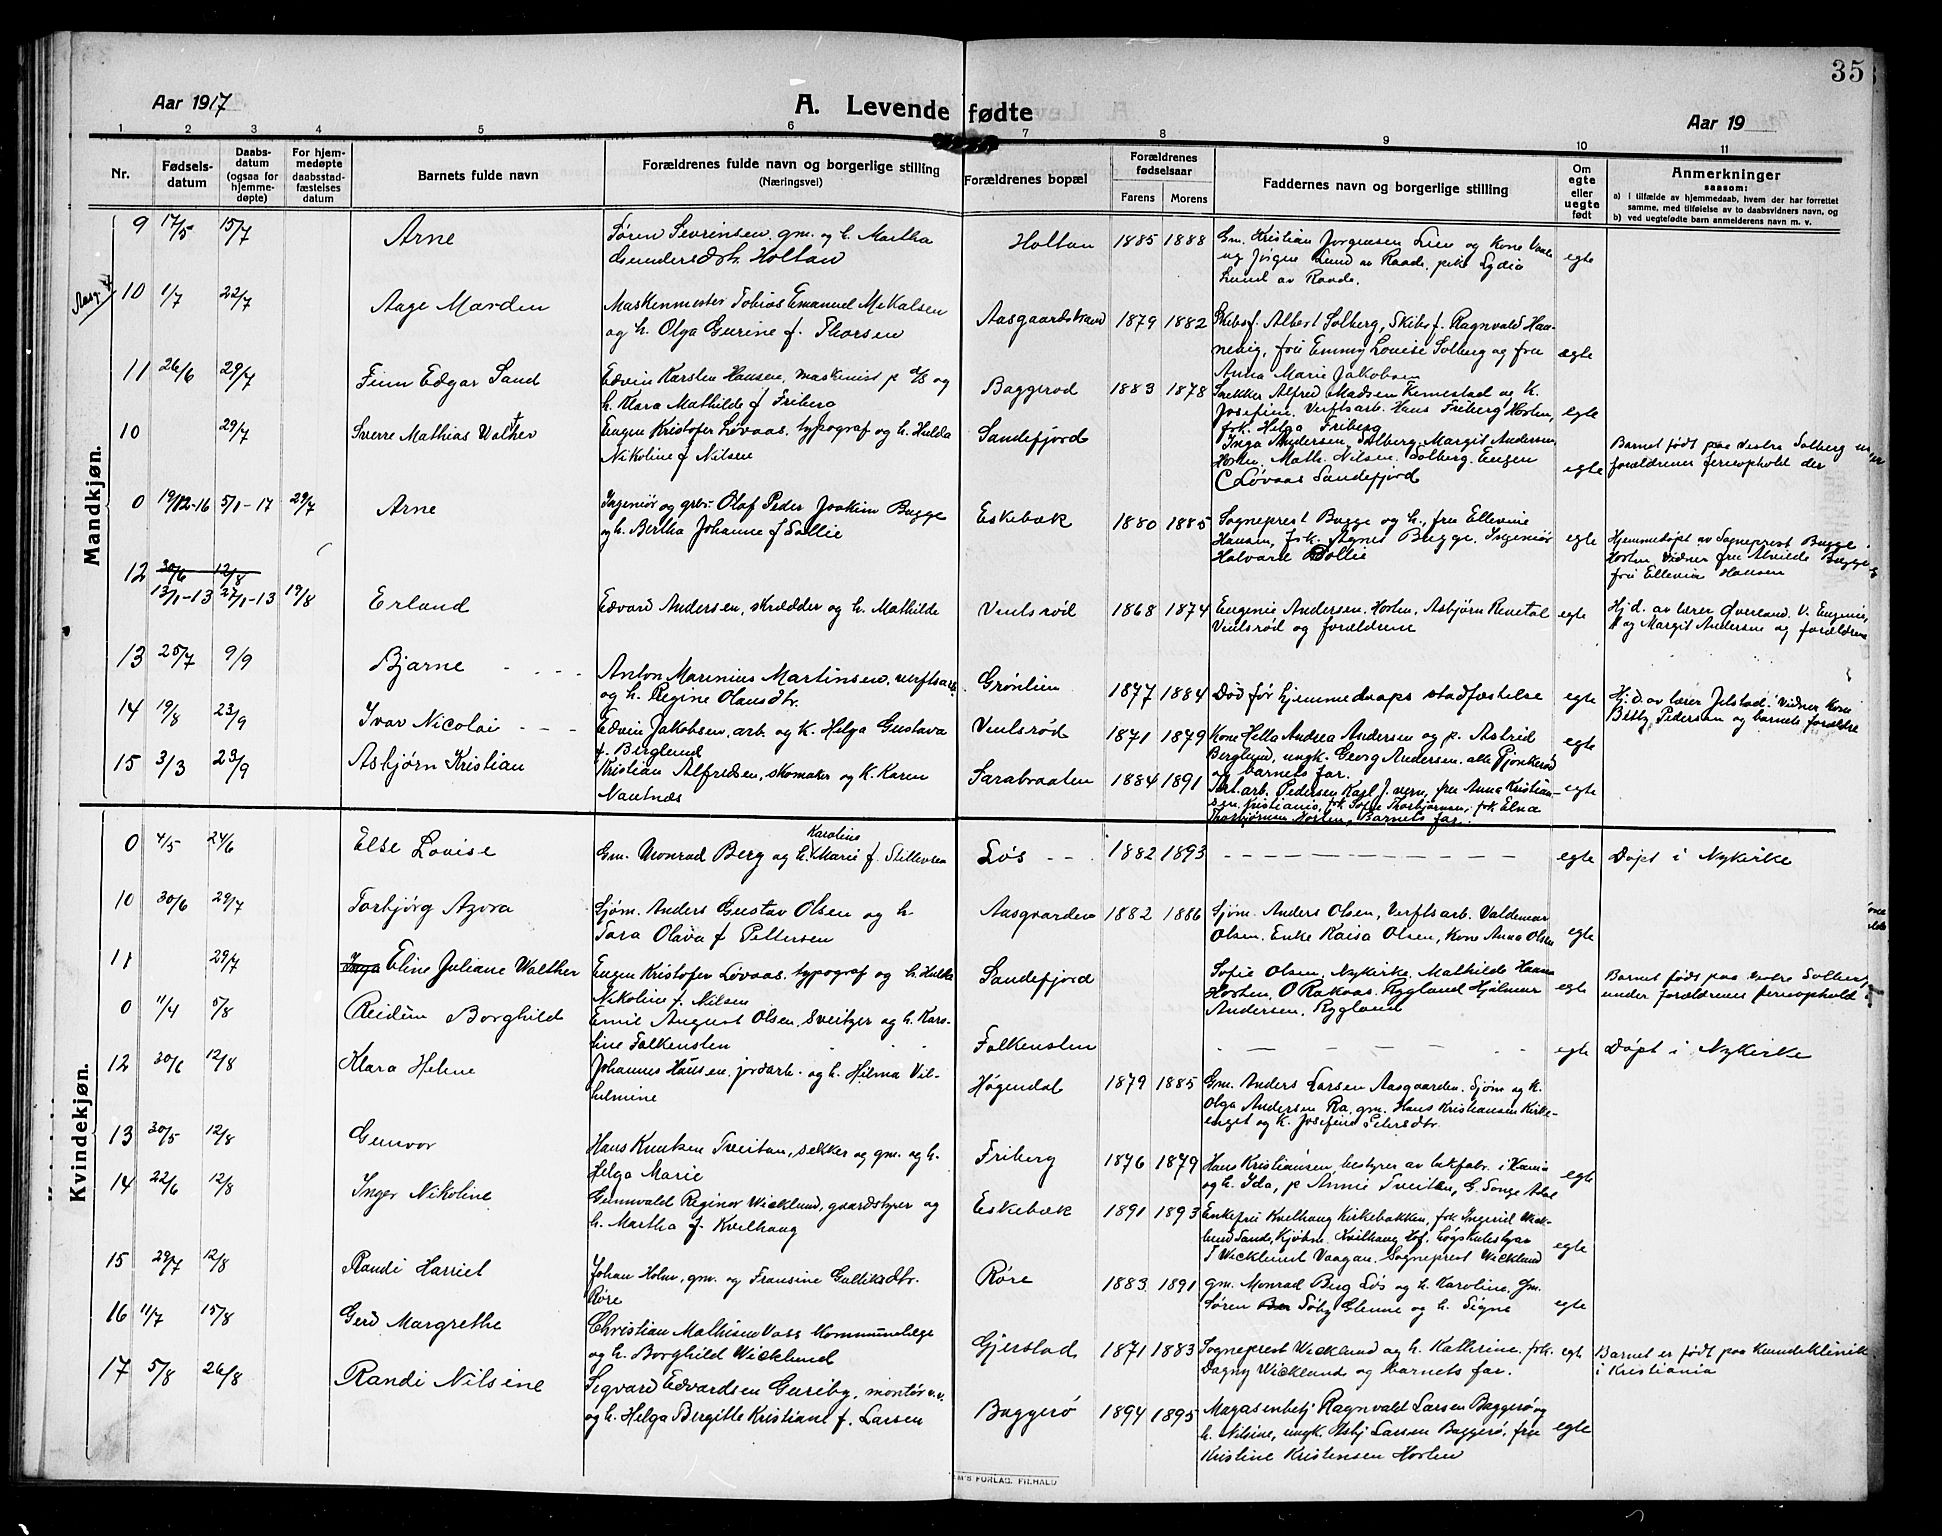 35
Aar 1917
A. Levende fødte
Aar 19
1 2 3 4 5 6 7 8 9 10 11
Nr.
Fødsels-
datum
Daabs-
datum
(ogsaa for
hjemme-
døpte)
For hjem-
medøpte
daabsstad-
fæstelses
datum
Barnets fulde navn
Forældrenes fulde navn og borgerlige stilling
(Næringsvei)
Forældrenes bopæl
Forældrenes
fødselsaar
Farens Morens
Faddernes navn og borgerlige stilling
Om
egte
eller
uegte
født
Anmerkninger
saasom:
a) i tilfælde av hjemmedaab, hvem der har forrettet
samme, med tilføielse av to daabsvidners navn, og
b) ved uegtefødte barn anmelderens navn m. v.
Mandkjøn.
9 17/5 15/7 Arne
Søren Sevrinsen, gm. og h. Martha
Gundersdtr. Holtan
Holtan 1885 1888
Gm. Kristian Jørgensen Lien og Kone
og Jørgine Lund av Raade, pike Lydia
Lund av Raade.
egte
10 1/7 22/7 Aage Marden
Maskenmester Tobias Emanuel Mikalsen
og h. Olga Gurine f. Thorsen
Aasgaardstrand 1879 1882
Skibsf. Albert Solberg, Skibsf. Ragnvald Haa-
nevig, fru Emmy Louise Solberg og fru
Anna Marie Jakobsen
ægte
11 26/6 29/7 Finn Edgar Sand
Edvin Karsten Hansen, maskinist p d/s og
h. Klara Mathilde f Friberg
Baggerød 1883 1878
Snekker Alfred Madsen Kemestad og K.
Josefine, Verftsarb. Hans Friberg Horten,
frk. Helga Friberg
egte
10 29/7 Sverre Mathias Walther
Eugen Kristofer Løvaas, typograf og h. Hulda
Nikoline f Nilsen
Sandefjord
Inga Andersen, Solberg, Margit Andersen
Horten, Math. Nilsen, Solberg. Eugen
Løvaas Sandefjord
egte
Barnet født paa vestre Solberg under
forældrenes ferieophold der
0 19/12-16 5/1-17 29/7 Arne
Ingeniør og grbr. Olaf Peder Joakim Bugge
og h. Bertha Johanne f Sollie
Eskebæk 1880 1885
Sogneprest Bugge og h., fru Ellevine
Hansen, frk. Agnes Bugge, Ingeniør
Halvard Sollie
egte
Hjemmedøpt av Sogneprest Bugge
Horten Vidner fru Alvilde Bugge &
fru Ellevine Hansen
12 30/6 12/8
13/1-13 27/1-13 19/8 Erland
Edvard Andersen, skrædder og h. Mathilde
Viulsrød 1868 1874
Eugenie Andersen, Horten, Asbjørn Revetal
Viulsrød og forældrene
egte
Hj.d. av lærer Øverland. V. Eugenie,
og Margit Andersen og forældrene
13 25/7 9/9 Bjarne
Anton Marinius Martinsen, verftsarb.
og h. Regine Olausdtr.
Grønlien 1877 1884
Død før hjemmedaaps stadfæstelse
egte
Hj.d. av lærer Jelstad. Vidner kone
Betsy Pedersen og barnets forældre
14 19/8 23/9 Ivar Nicolai
Edvin Jakobsen, arb. og K. Helga Gustava
f. Berglund
Viulsrød 1871 1879
Kone Hella Andrea Andersen og p. Astrid
Berglund, ungk. Georg Andersen, alle Gjønkerød
og barnets far.
egte
15 3/3 23/9 Asbjørn Kristian
Kristian Alfredsen, skomaker og K. Karen
Nautnæs
Sarabraaten 1884 1891
Pedersen Karl J. vern, fru Anna Kristian-
sen, Kristiania, frk. Sofie Thorbjørnsen, frk. Elna
Thorbjørnsen Horten, Barnets far.
egte
Kvindekjøn.
0 4/5 24/6 Else Lovise
Karoline
Gm. Monrad Berg og h. Marie f. Stillevsen
Løs 1882 1893
egte
Døpt i Nykirke
10 30/6 29/7 Torbjørg Azora
Sjøm. Anders Gustav Olsen og h.
Tora Olava f Pettersen
Aasgaarden 1882 1886
Sjøm. Anders Olsen, Verftsarb. Valdemar
Olsen. Enke Kaisa Olsen, Kone Anna Olsen
egte
11 29/7 Inga Eline Juliane Walther
Eugen Kristofer Løvaas, typograf og h. Hulda
Nikoline f. Nilsen
Sandefjord
Sofie Olsen, Nykirke, Mathilde Hansen
Horten, O Rakaas, Rygland Hjalmar
Andersen, Rygland
egte
Barnet født paa vestre Solberg,
under forældrenes ferieophold
0 11/4 5/8 Reidun Borghild
Emil August Olsen, Sveitzer og h. Karo-
line Falkensten
Falkensten
egte
Døpt i Nykirke
12 30/6 12/8 Klara Helene
Johannes Hansen, jordarb. og h. Hilma Vil-
helmine
Høgendal 1879 1885
Gm. Anders Larsen Aasgaarden, Sjøm og K.
Olga Andersen Ra, gm. Hans Kristiansen Kirke-
enget og K. Josefine Pedersdtr.
13 30/5 12/8 Gunvor
Hans Knutsen Tveitan, sekker og gm. og h.
Helga Marie
Friberg 1876 1879
Hans Kristiansen, bestyrer av
og h. Ida, p Annie Tveitan, G. Songe
egte
14 22/6 12/8 Inger Nikoline
Gunnvald Reginor Wicklund, gaardstyrer og
h. Martha f. Kvilhaug
Eskebæk 1891 1893
Enkefru Kvilhaug Kirkebakken, frk Ingerid Wick-
lund Sande, Kjøbm. Kvilhaug Hof,
T Wicklund Vaagan, Sogneprest Wicklund
egte
15 29/7 12/8 Randi Harriet
Johan Holm, gm. og Fransine Gulliksdtr.
Røre
Røre 1883 1891
gm. Monrad Berg Løs og h. Karoline, Gm.
Søren Søby Glenne og h. Signe
egte
16 11/7 15/8 Gerd Margrethe
Christian Mathisen Vass Kommunelæge
og h. Borghild Wicklund
Gjerstad 1871 1883
Sogneprest Wicklund og h. Kathrine, frk.
Dagny Wicklund og barnets far.
egte
Barnet er født paa Kvindeklinik
i Kristiania
17 5/8 26/8 Randi Nilsine
Sigvard Edvardsen Guriby, montør
og h. Helga Bergitte Kristiane f. Larsen
Baggerø 1894 1895
Magasenbetj Ragnvald Larsen Baggerø og
h. Nilsine, ungk. Asbj Larsen Baggerø, fru
Kristine Kristensen Horten
egte
M'S FORLAG, FR.HALD